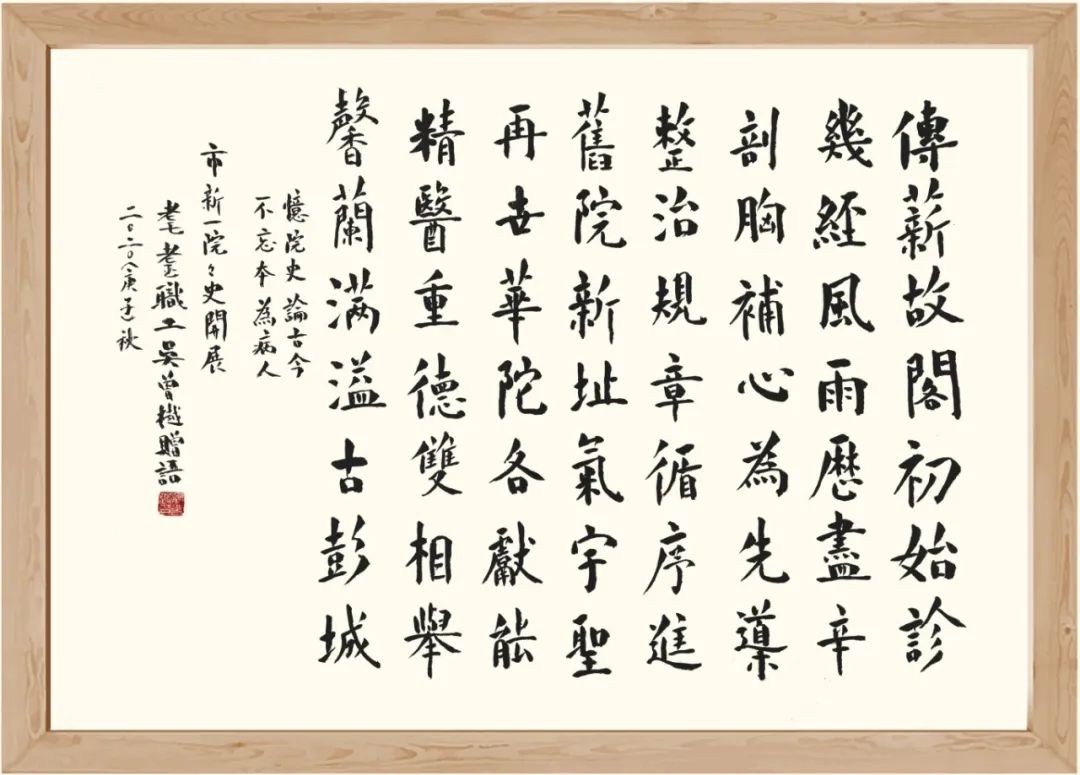 傳薪故閣初始診
幾經風雨歷盡辛
剖胸補心為先導
整治規章循序進
舊院新址氣宇聖
再世華陀各獻能
精醫重德雙相舉
馨蘭满溢古彭城
憶院史 論古今
不忘本 為病人
市新一院々史開展
耄耋職工吳曾樾贈語
二〇二〇庚子秋